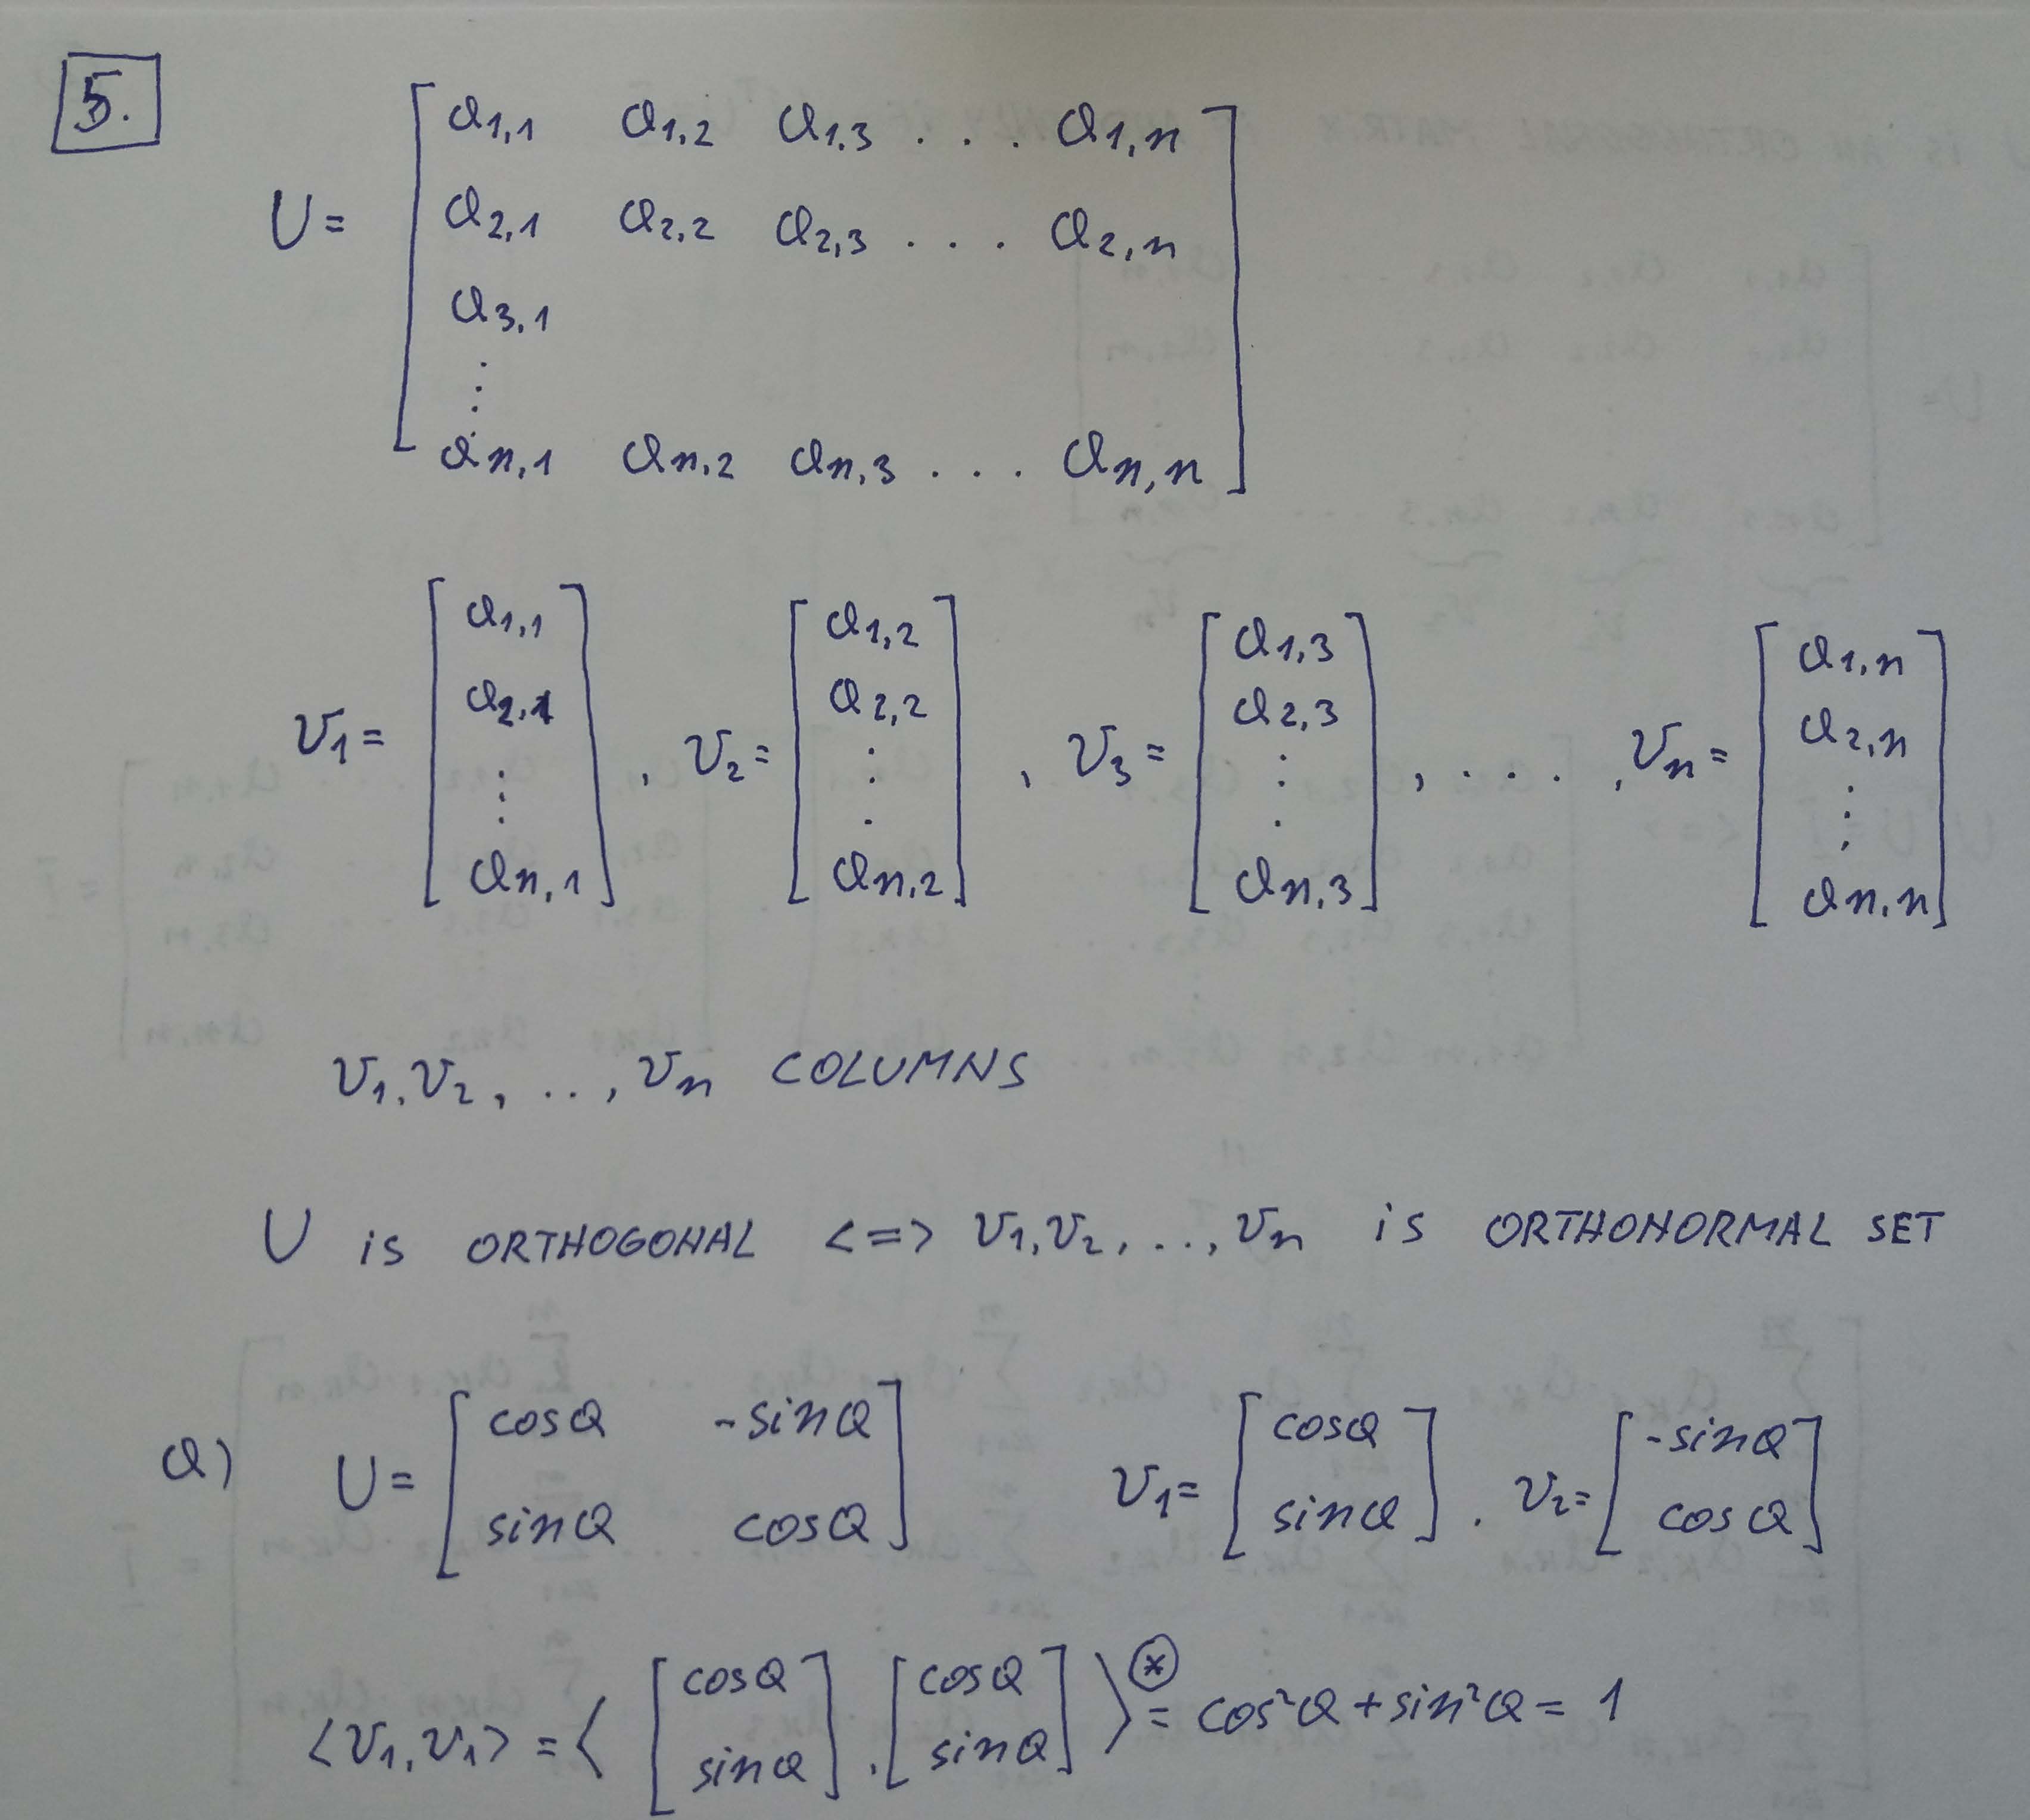 5.
U = [ a1,1 a1,2 a1,3 . . . a1,n
a2,1 a2,2 a2,3 . . . a2,n
a3,1
⋮
an,1 an,2 an,3 . . . an,n ]
v1 = [ a1,1 a2,1 ⋮ an,1 ] , v2 = [ a1,2 a2,2 ⋮ an,2 ] , v3 = [ a1,3 a2,3 ⋮ an,3 ] , . . . , vn = [ a1,n a2,n ⋮ an,n ]
v1, v2, ..., vn COLUMNS
U is ORTHOGONAL <=> v1, v2, ..., vn is ORTHONORMAL SET
a) U = [ cosα -sinα
sinα cosα ] v1 = [ cosα sinα ] , v2 = [ -sinα cosα ]
<v1, v1> = < [ cosα sinα ] , [ cosα sinα ] > (*) = cos²α + sin²α = 1